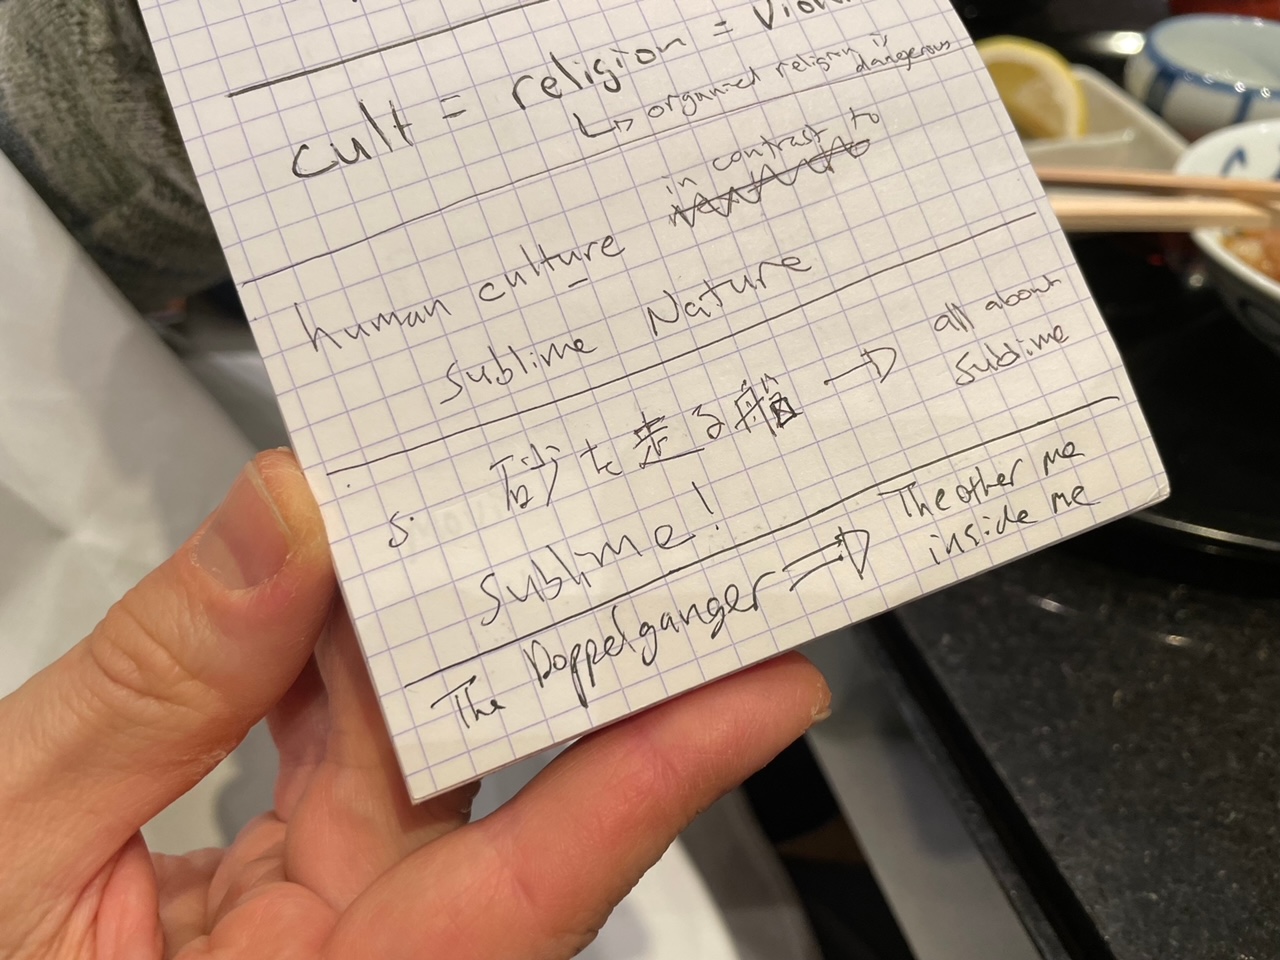 cult = religion =
↳ organized religion is dangerous
human culture in contrast to
sublime Nature
砂を走る船 → all about sublime
S.
sublime!
The Doppelganger ⇒ The other me inside me